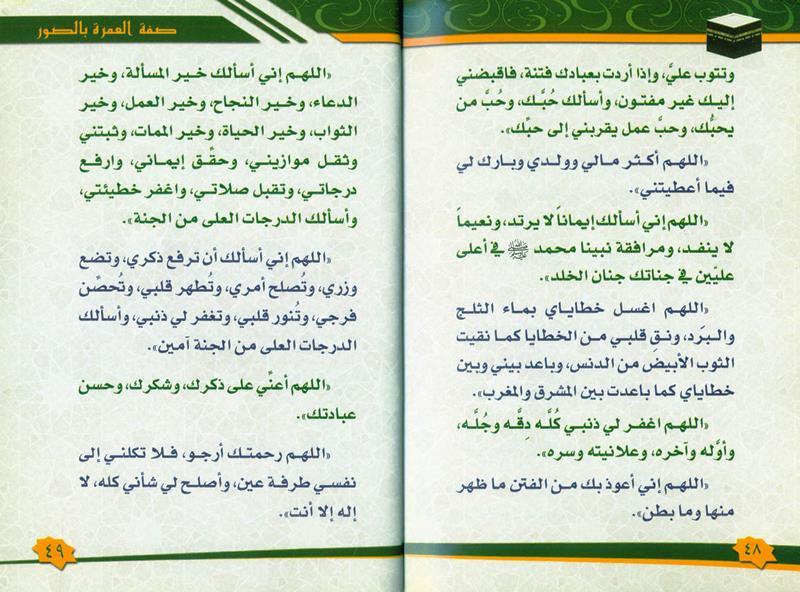 وتتوب عليَّ، وإذا أردت بعبادك فتنة، فاقبضني
إليك غير مفتون، وأسألك حُبَّك، وحُبَّ من
يحبُّك، وحبَّ عمل يقربني إلى حبِّك».
«اللهم أكثر مالي وولدي وبارك لي
فيما أعطيتني».
«اللهم إني أسألك إيماناً لا يرتد، ونعيماً
لا ينفد، ومرافقة نبينا محمد ﷺ في أعلى
عليّين في جناتك جنان الخلد».
«اللهم اغسل خطاياي بماء الثلج
والبَرَد، ونقِ قلبي من الخطايا كما نقيت
الثوب الأبيض من الدنس، وباعد بيني وبين
خطاياي كما باعدت بين المشرق والمغرب».
«اللهم اغفر لي ذنبي كُلَّه دِقَّه وجُلَّه،
وأوَّله وآخره، وعلانيته وسره».
«اللهم إني أعوذ بك من الفتن ما ظهر
منها وما بطن».
٤٨
صفة العمرة بالصور
«اللهم إني أسألك خير المسألة، وخير
الدعاء، وخير النجاح، وخير العمل، وخير
الثواب، وخير الحياة، وخير الممات، وثبتني
وثقل موازيني، وحقِّق إيماني، وارفع
درجاتي، وتقبل صلاتي، واغفر خطيئتي،
وأسألك الدرجات العلى من الجنة».
«اللهم إني أسألك أن ترفع ذكري، وتضع
وزري، وتُصلح أمري، وتُطهر قلبي، وتُحصِّن
فرجي، وتُنور قلبي، وتغفر لي ذنبي، وأسألك
الدرجات العلى من الجنة آمين».
«اللهم أعنِّي على ذكرك، وشكرك، وحسن
عبادتك».
«اللهم رحمتك أرجو، فلا تكلني إلى
نفسي طرفة عين، وأصلح لي شأني كله، لا
إله إلا أنت».
٤٩